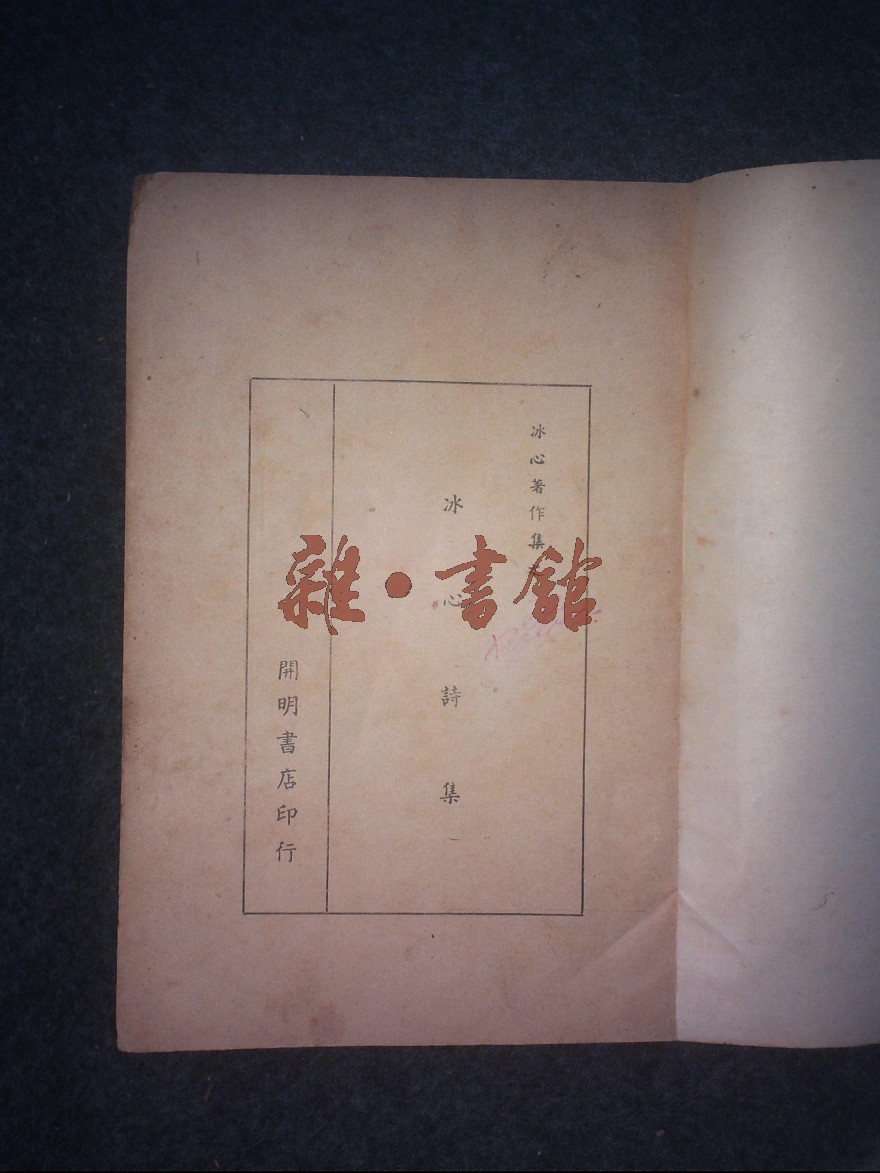 冰心著作集
冰心詩集
開明書店印行
雜·書館